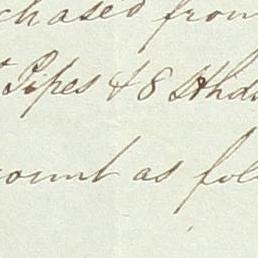 chased from
Pipes & 8 Hhds
count as fol